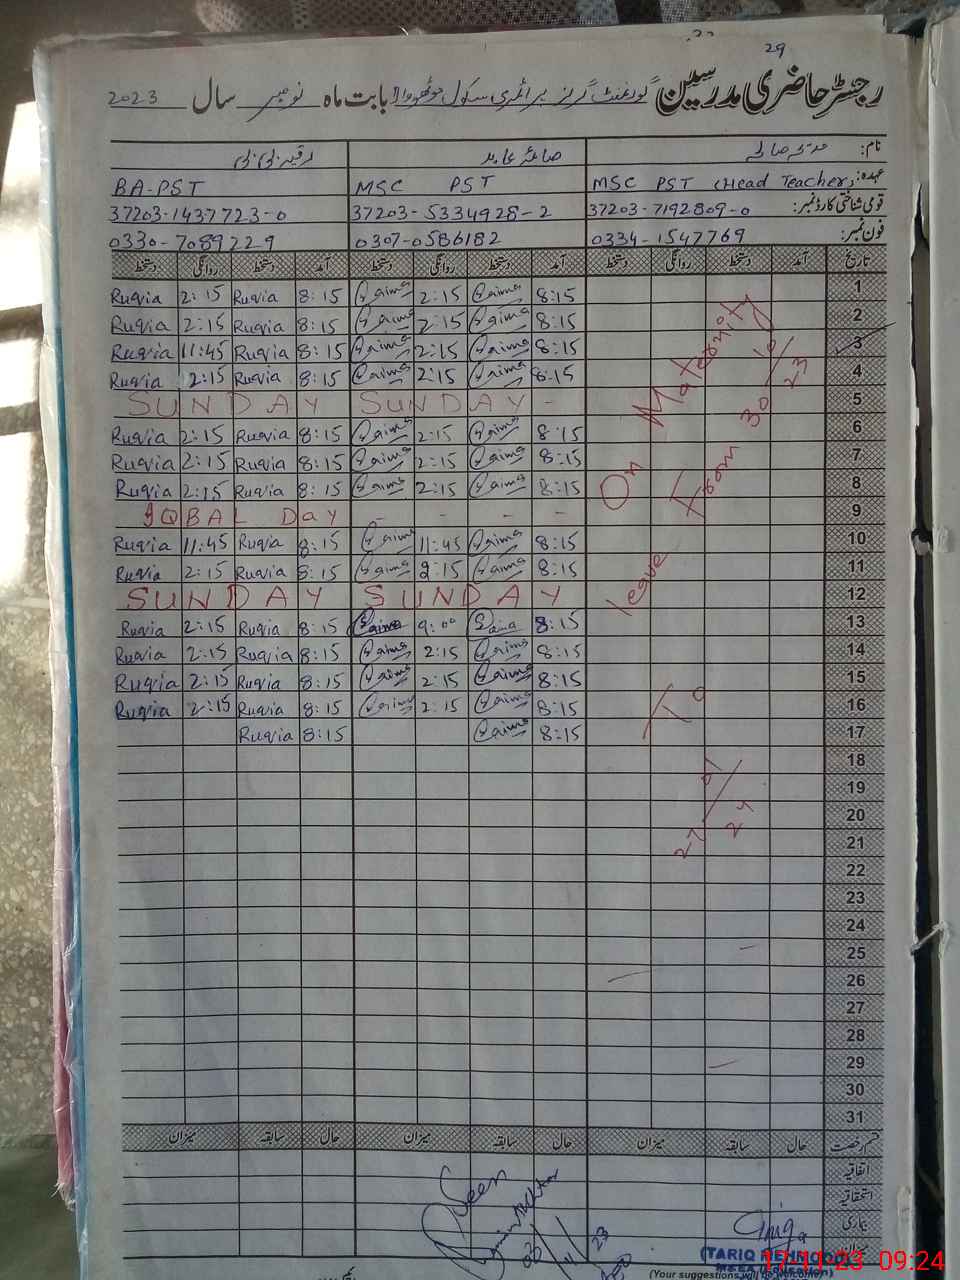 29
رجسٹر حاضری مدرسین گورنمنٹ گرلز پرائمری سکول بابت ماہ نومبر سال 2023
نام:
عہدہ: MSC PST (Head Teacher) MSC PST BA-PST
قومی شناختی کارڈ نمبر: 37203-7192809-0 37203-5334928-2 37203-1437723-0
فون نمبر: 0334-1547769 0307-0586182 0330-7089229
تاریخ آمد دستخط روانگی دستخط آمد دستخط روانگی دستخط آمد دستخط روانگی دستخط
1 8:15 Saima 2:15 Saima 8:15 Ruqia 2:15 Ruqia
2 8:15 Saima 2:15 Saima 8:15 Ruqia 2:15 Ruqia
3 8:15 Saima 2:15 Saima 8:15 Ruqia 11:45 Ruqia
4 8:15 Saima 2:15 Saima 8:15 Ruqia 2:15 Ruqia
5 SUNDAY SUNDAY -
6 8:15 Saima 2:15 Saima 8:15 Ruqia 2:15 Ruqia
7 8:15 Saima 2:15 Saima 8:15 Ruqia 2:15 Ruqia
8 8:15 Saima 2:15 Saima 8:15 Ruqia 2:15 Ruqia
9 IQBAL Day - - - -
10 8:15 Saima 11:45 Saima 8:15 Ruqia 11:45 Ruqia
11 8:15 Saima 2:15 Saima 8:15 Ruqia 2:15 Ruqia
12 SUNDAY SUNDAY
13 8:15 Saima 9:00 Saima 8:15 Ruqia 2:15 Ruqia
14 8:15 Saima 2:15 Saima 8:15 Ruqia 2:15 Ruqia
15 8:15 Saima 2:15 Saima 8:15 Ruqia 2:15 Ruqia
16 8:15 Saima 2:15 Saima 8:15 Ruqia 2:15 Ruqia
17 8:15 Saima 8:15 Ruqia
18
19
20
21
22
23
24
25
26
27
28
29
30
31
On Maternity
leave From 30/10/23
To 27/01/24
قسم رخصت حال سابقہ میزان حال سابقہ میزان حال سابقہ میزان
اتفاقیہ
استحقاقیہ
بیماری
Seen
(TARIQ MEHMOOD)
(Your suggestions will be welcomed)
17-11-23 09:24